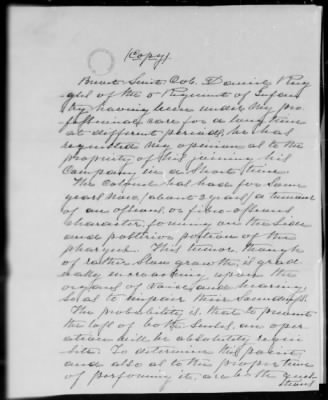 (Copy).
Brevet Lieut. Col. Daniel Rug-
gles of the 5 Regiment of Infan-
try having been under my pro-
fessional care for a long time
at different periods, he has
requested my opinion as to the
propriety of his joining his
Company in a short time.
The Colonel has had for some
years now, (about 2 years) a tumour
of an osteous or fibro-osteous
character, forming on the side
and posterior portion of the
pharynx. This tumor, though
of rather slow growth, is grad-
ually encroaching upon the
organs of voice and hearing
so as to impair their soundness.
The probability is that to prevent
the loss of both the senses, an oper-
ation will be absolutely requi-
site. To determine this point,
and also as to the proper time
of performing it, are both quest-
tions